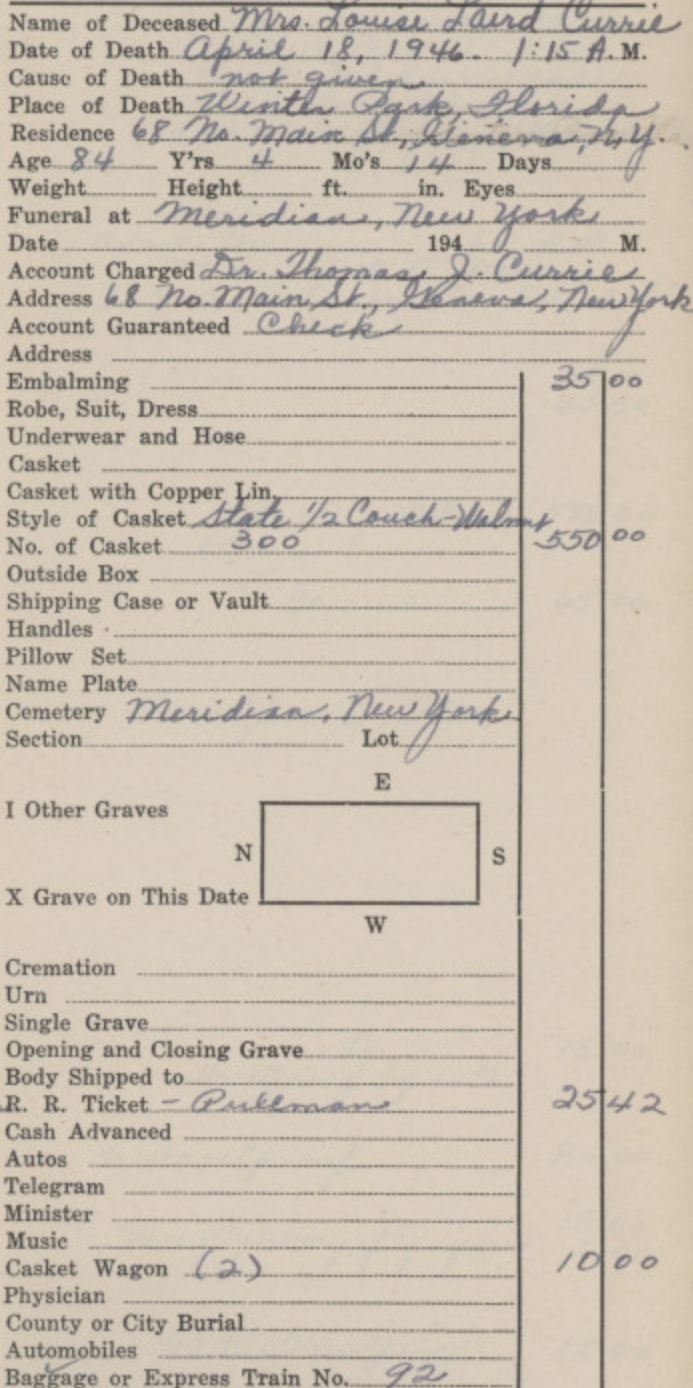 Name of Deceased Mrs. Louise Laird Currie
Date of Death April 18, 1946. 1:15 A. M.
Cause of Death not given
Place of Death Winter Park, Florida
Residence 68 No. Main St., Geneva, N.Y.
Age 84 Y'rs 4 Mo's 14 Days
Weight Height ft. in. Eyes
Funeral at Meridian, New York
Date 194 M.
Account Charged Dr. Thomas J. Currie
Address 68 No. Main St., Geneva, New York
Account Guaranteed Check
Address
Embalming 35 00
Robe, Suit, Dress
Underwear and Hose
Casket
Casket with Copper Lin.
Style of Casket State 1/2 Couch-Walnut
No. of Casket 300 550 00
Outside Box
Shipping Case or Vault
Handles
Pillow Set
Name Plate
Cemetery Meridian, New York
Section Lot
E
I Other Graves
N S
X Grave on This Date
W
Cremation
Urn
Single Grave
Opening and Closing Grave
Body Shipped to
R. R. Ticket - Pullman 25 42
Cash Advanced
Autos
Telegram
Minister
Music
Casket Wagon (2) 10 00
Physician
County or City Burial
Automobiles
Baggage or Express Train No. 92